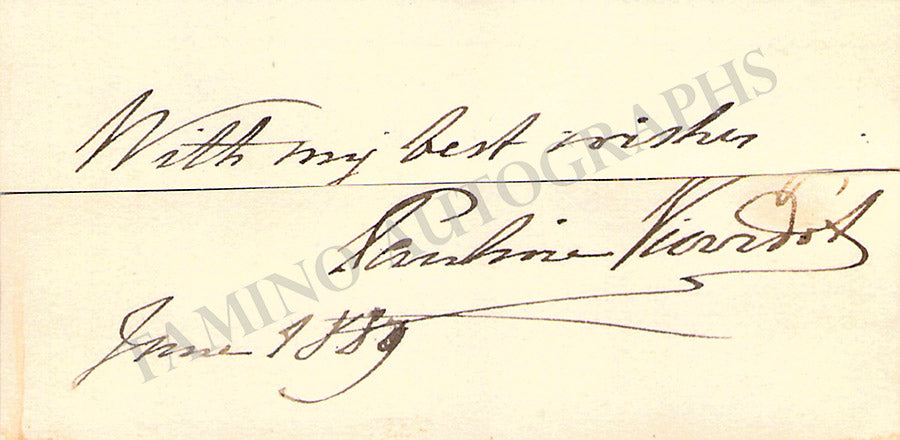 With my best wishes
Pauline Viardot
June 1889
TAMINO AUTOGRAPHS